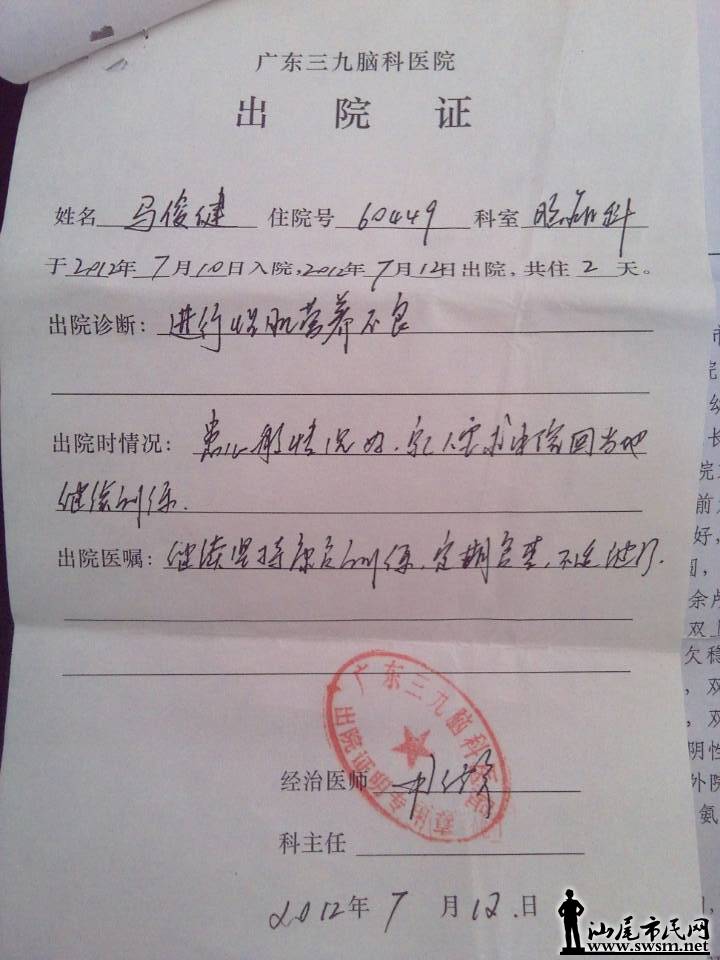 广东三九脑科医院
出 院 证
姓名 马俊健 住院号 60449 科室
于2012年7月10日入院,2012年7月12日出院,共住2天。
出院诊断: 进行性肌营养不良
出院时情况: 患儿 情况好,家人要求出院回当地
继续训练.
出院医嘱: 继续坚持康复训练,定期复查,不适随诊.
广东三九脑科医院
出院证明专用章
经治医师
科主任
2012年7月12.日
汕尾市民网
www.swsm.net
市
院
幼
长
院
前
好,
余卢
双上
欠稳
,双
,双
阴性
外院
氨